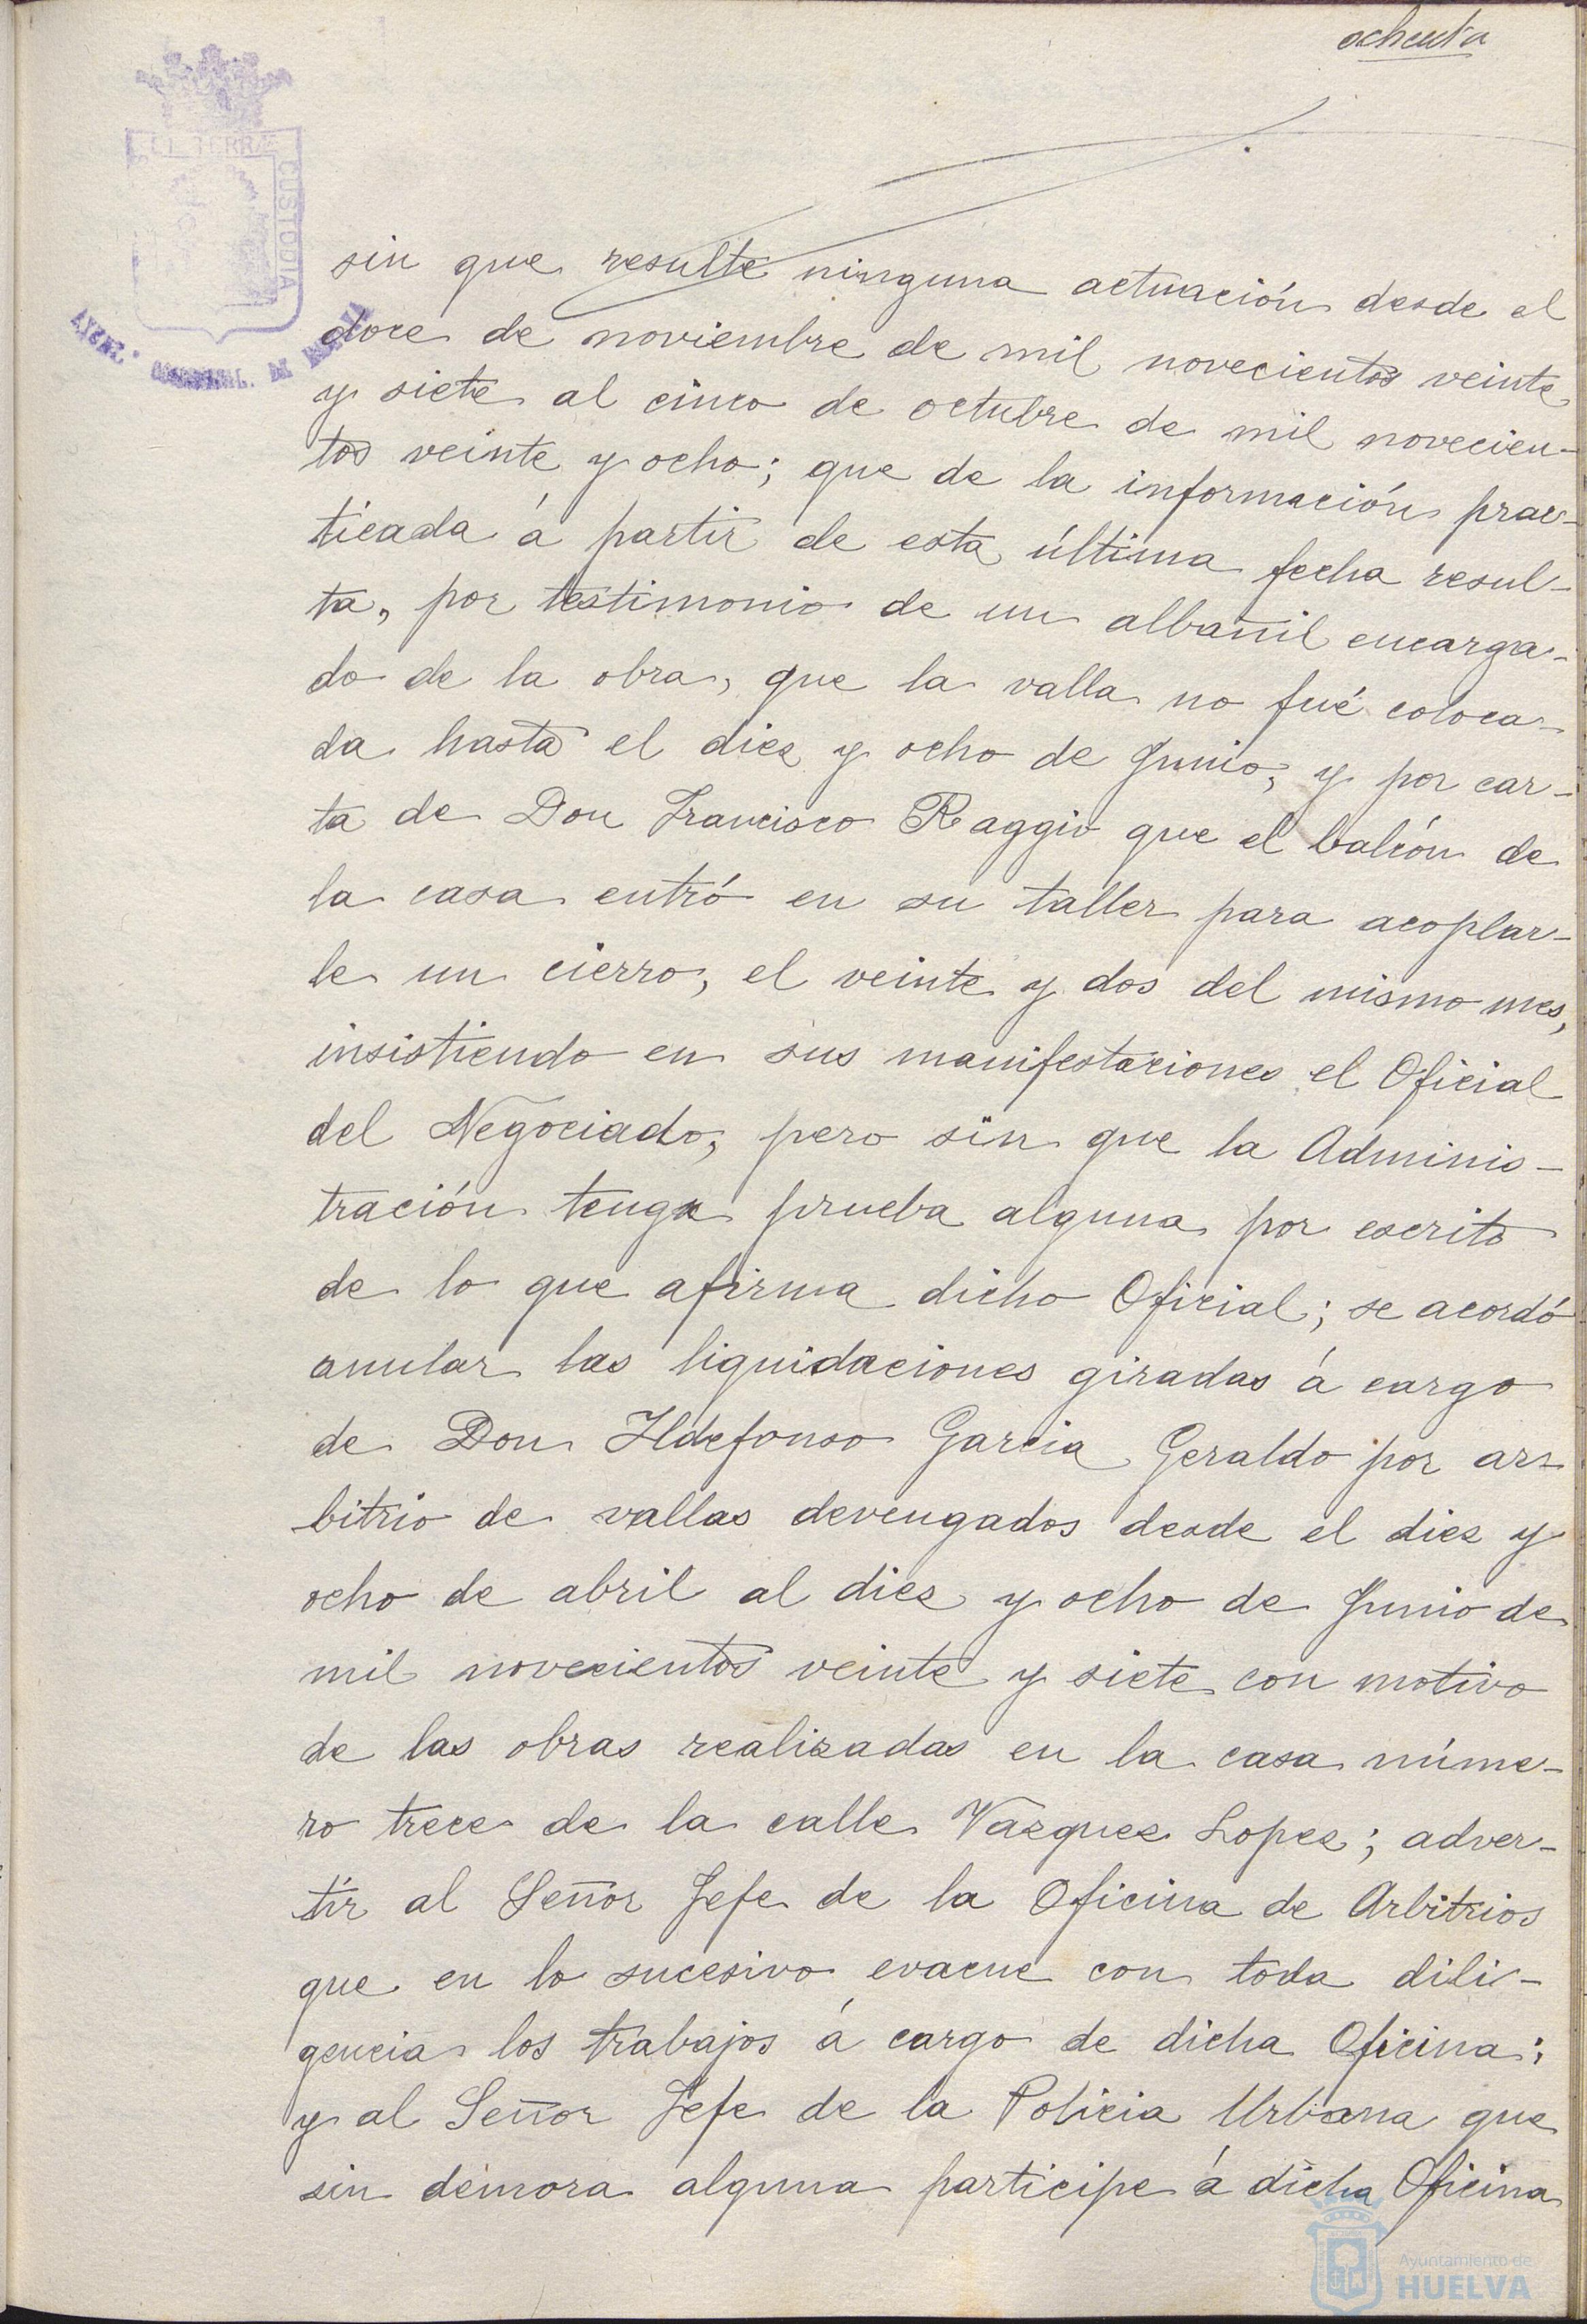 ochenta
TERRÆ
CUSTODIA
sin que resulte ninguna actuación desde el
doce de noviembre de mil novecientos veinte
y siete al cinco de octubre de mil novecien-
tos veinte y ocho; que de la información prac-
ticada á partir de esta última fecha resul-
ta, por testimonio de un albañil encarga-
do de la obra, que la valla no fué coloca-
da hasta el diez y ocho de Junio, y por car-
ta de Don Francisco Raggio que el balcón de
la casa entró en su taller para acoplar-
le un cierro, el veinte y dos del mismo mes,
insistiendo en sus manifestaciones el Oficial
del Negociado, pero sin que la Adminis-
tración tenga prueba alguna por escrito
de lo que afirma dicho Oficial; se acordó
anular las liquidaciones giradas á cargo
de Don Ildefonso Garcia Geraldo por ar-
bitrio de vallas devengados desde el diez y
ocho de abril al diez y ocho de Junio de
mil novecientos veinte y siete con motivo
de las obras realizadas en la casa núme-
ro trece de la calle Vazquez Lopez; adver-
tir al Señor Jefe de la Oficina de Arbitrios
que en lo sucesivo evacue con toda dili-
gencia los trabajos á cargo de dicha Oficina;
y al Señor Jefe de la Policia Urbana que
sin demora alguna participe á dicha Oficina
Ayuntamiento de
HUELVA